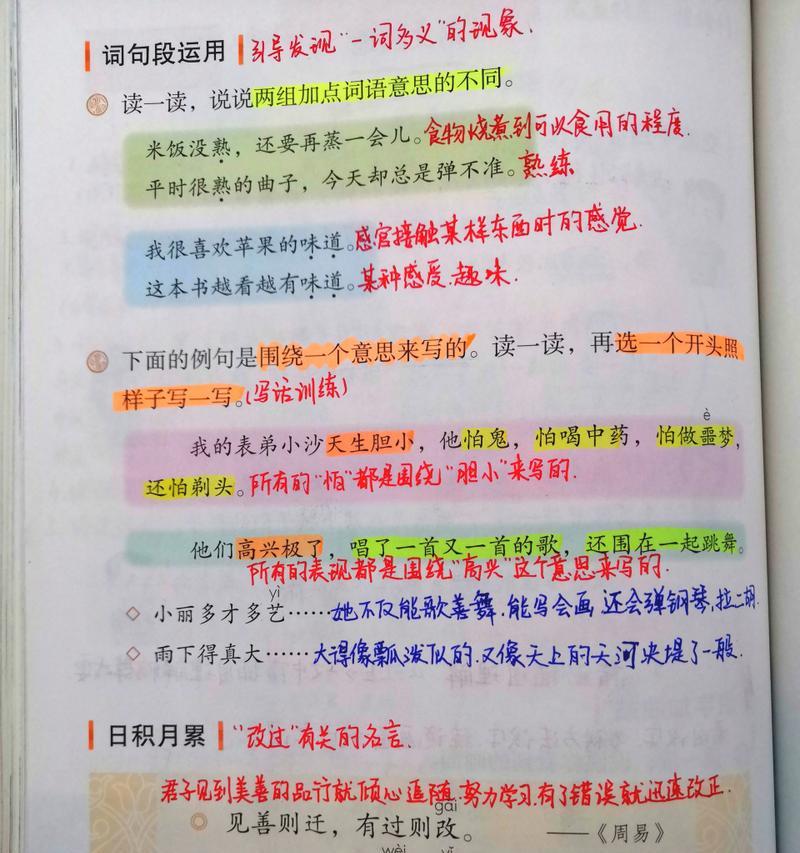 词句段运用 引导发现“一词多义”的现象.
读一读，说说两组加点词语意思的不同。
米饭没熟，还要再蒸一会儿。食物烧煮到可以食用的程度.
平时很熟的曲子，今天却总是弹不准。熟练
我很喜欢苹果的味道。感官接触某样东西时的感觉.
这本书越看越有味道。某种感受.趣味.
下面的例句是围绕一个意思来写的。读一读，再选一个开头照
样子写一写。(写话训练)
è
我的表弟小沙天生胆小，他怕鬼，怕喝中药，怕做噩梦，
还怕剃头。所有的“怕”都是围绕“胆小”来写的.
他们高兴极了，唱了一首又一首的歌，还围在一起跳舞。
所有的表现都是围绕“高兴”这个意思来写的.
yì
◇ 小丽多才多艺……她不仅能歌善舞.能写会画 还会弹钢琴,拉二胡.
◇ 雨下得真大……大得像瓢泼似的.又像天上的天河决堤了一般.
日积月累 “改过”有关的名言.
君子见到美善的品行就倾心追随.努力学习.有了错误就迅速改正.
gǎi
见善则迁，有过则改。 ——《周易》
wèi yī